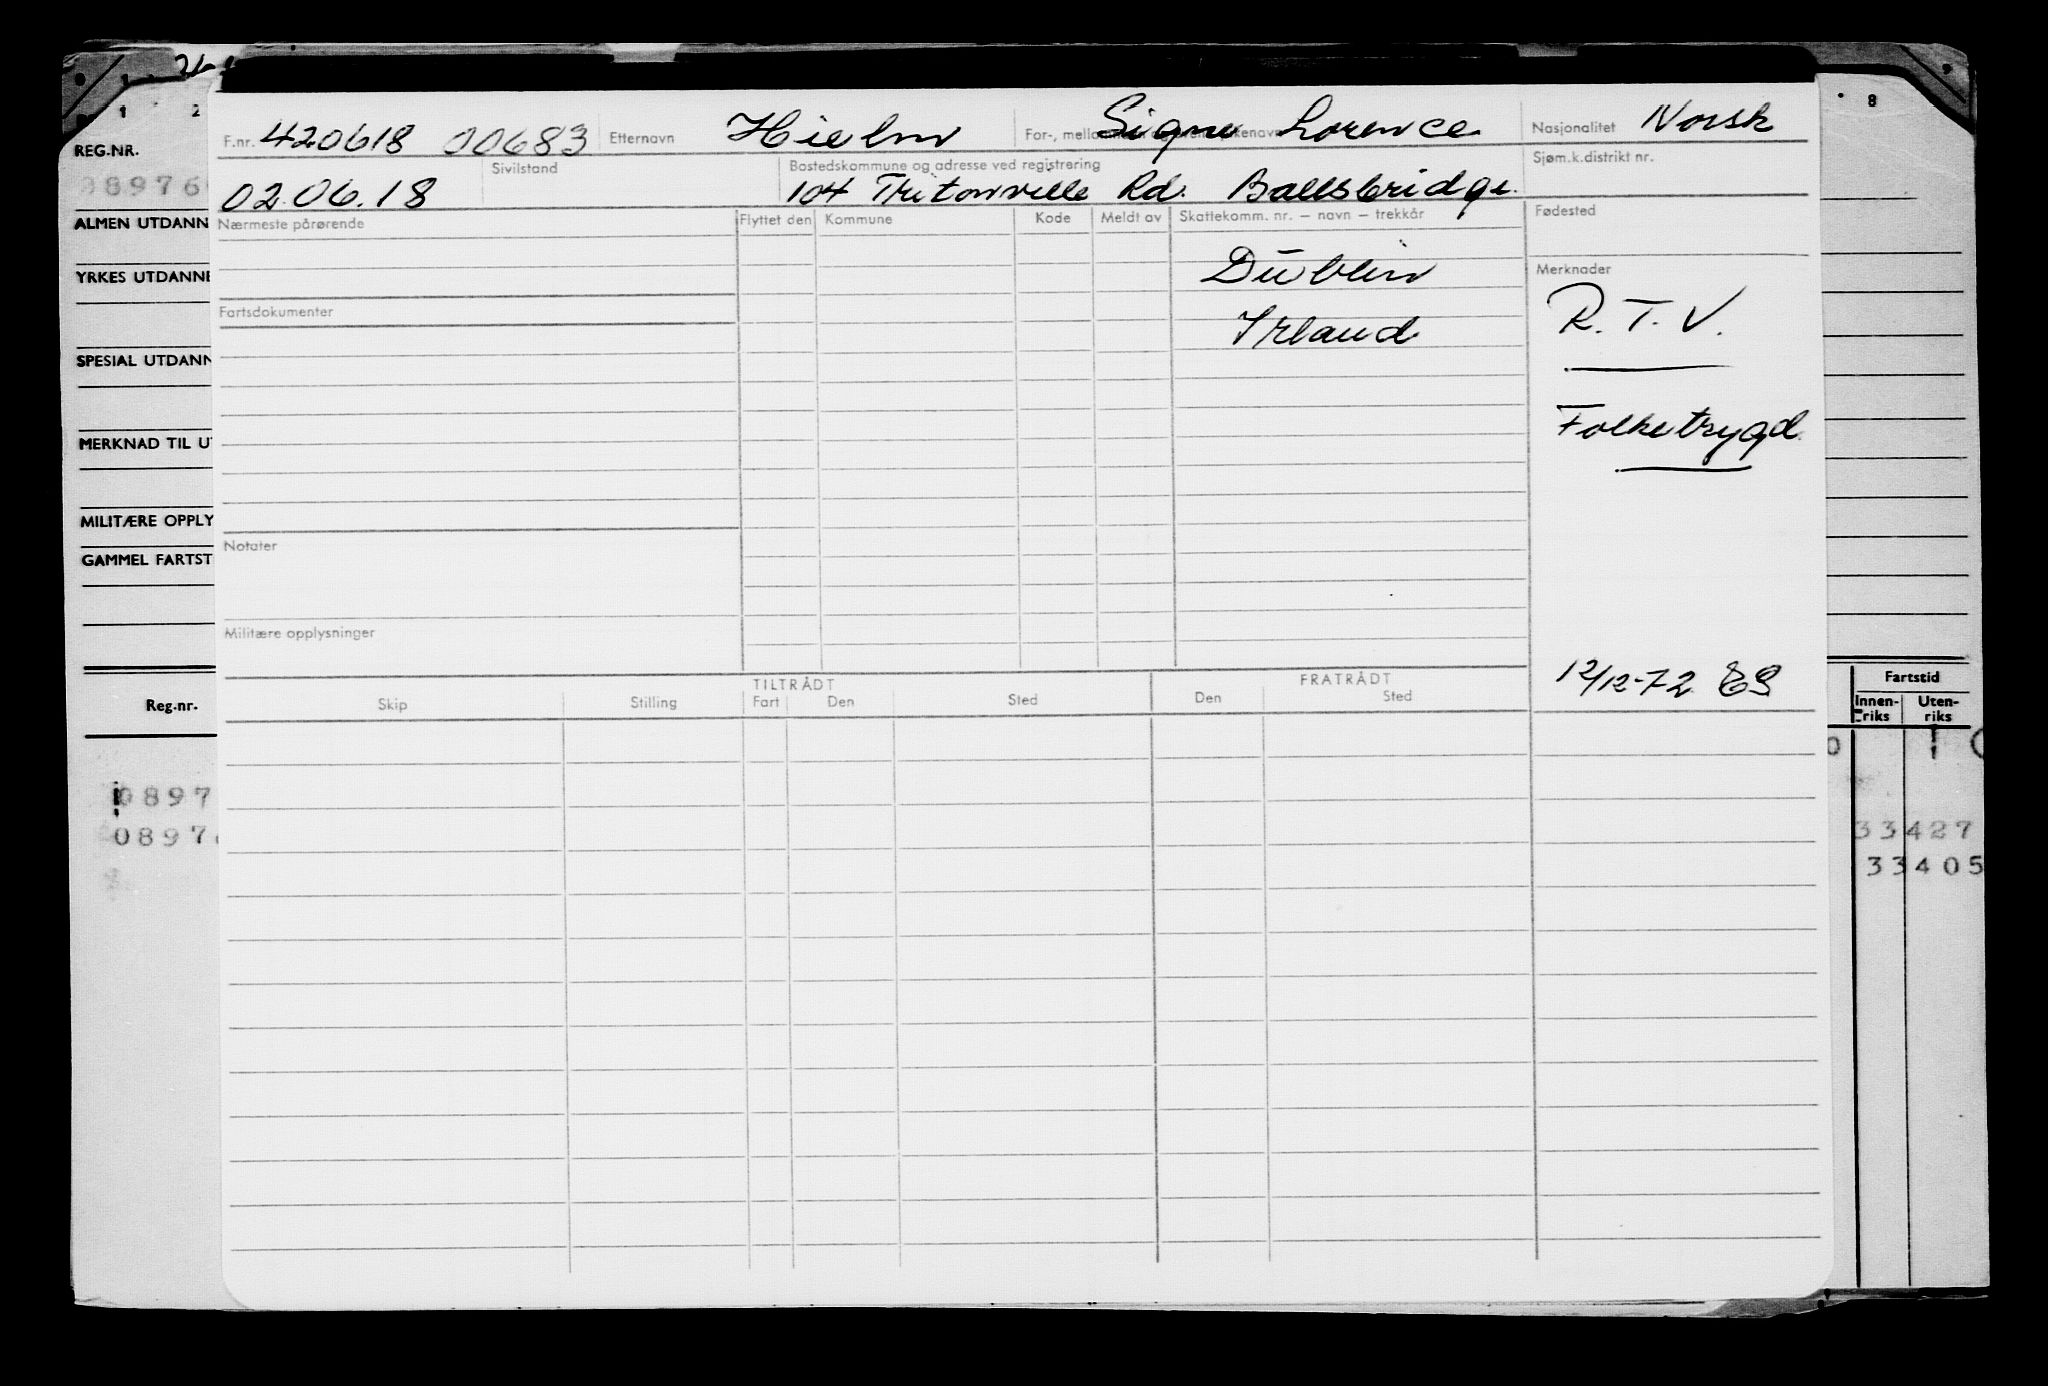 1 2 8 9
REG.NR.
08976
ALMEN UTDANN
YRKES UTDANNE
SPESIAL UTDANN
MERKNAD TIL UT
MILITÆRE OPPLY
GAMMEL FARTST
Reg.nr.
0897
0897
F.nr. 420618 00683 Etternavn Hielm For-, mello Signe Lorence Nasjonalitet Norsk
02.06.18 Sivilstand Bostedskommune og adresse ved registrering Sjøm.k.distrikt nr.
104 Tritonville Rd. Ballsbridge.
Nærmeste pårørende Flyttet den Kommune Kode Meldt av Skattekomm. nr. — navn — trekkår Fødested
Dublin
Merknader
Fartsdokumenter
Irland
R. T. V.
Folketrygd.
Notater
Militære opplysninger
12/12-72 ES
TILTRÅDT FRATRÅDT
Skip Stilling Fart Den Sted Den Sted
Fartstid
Innen-riks Uten-riks
33427
33405